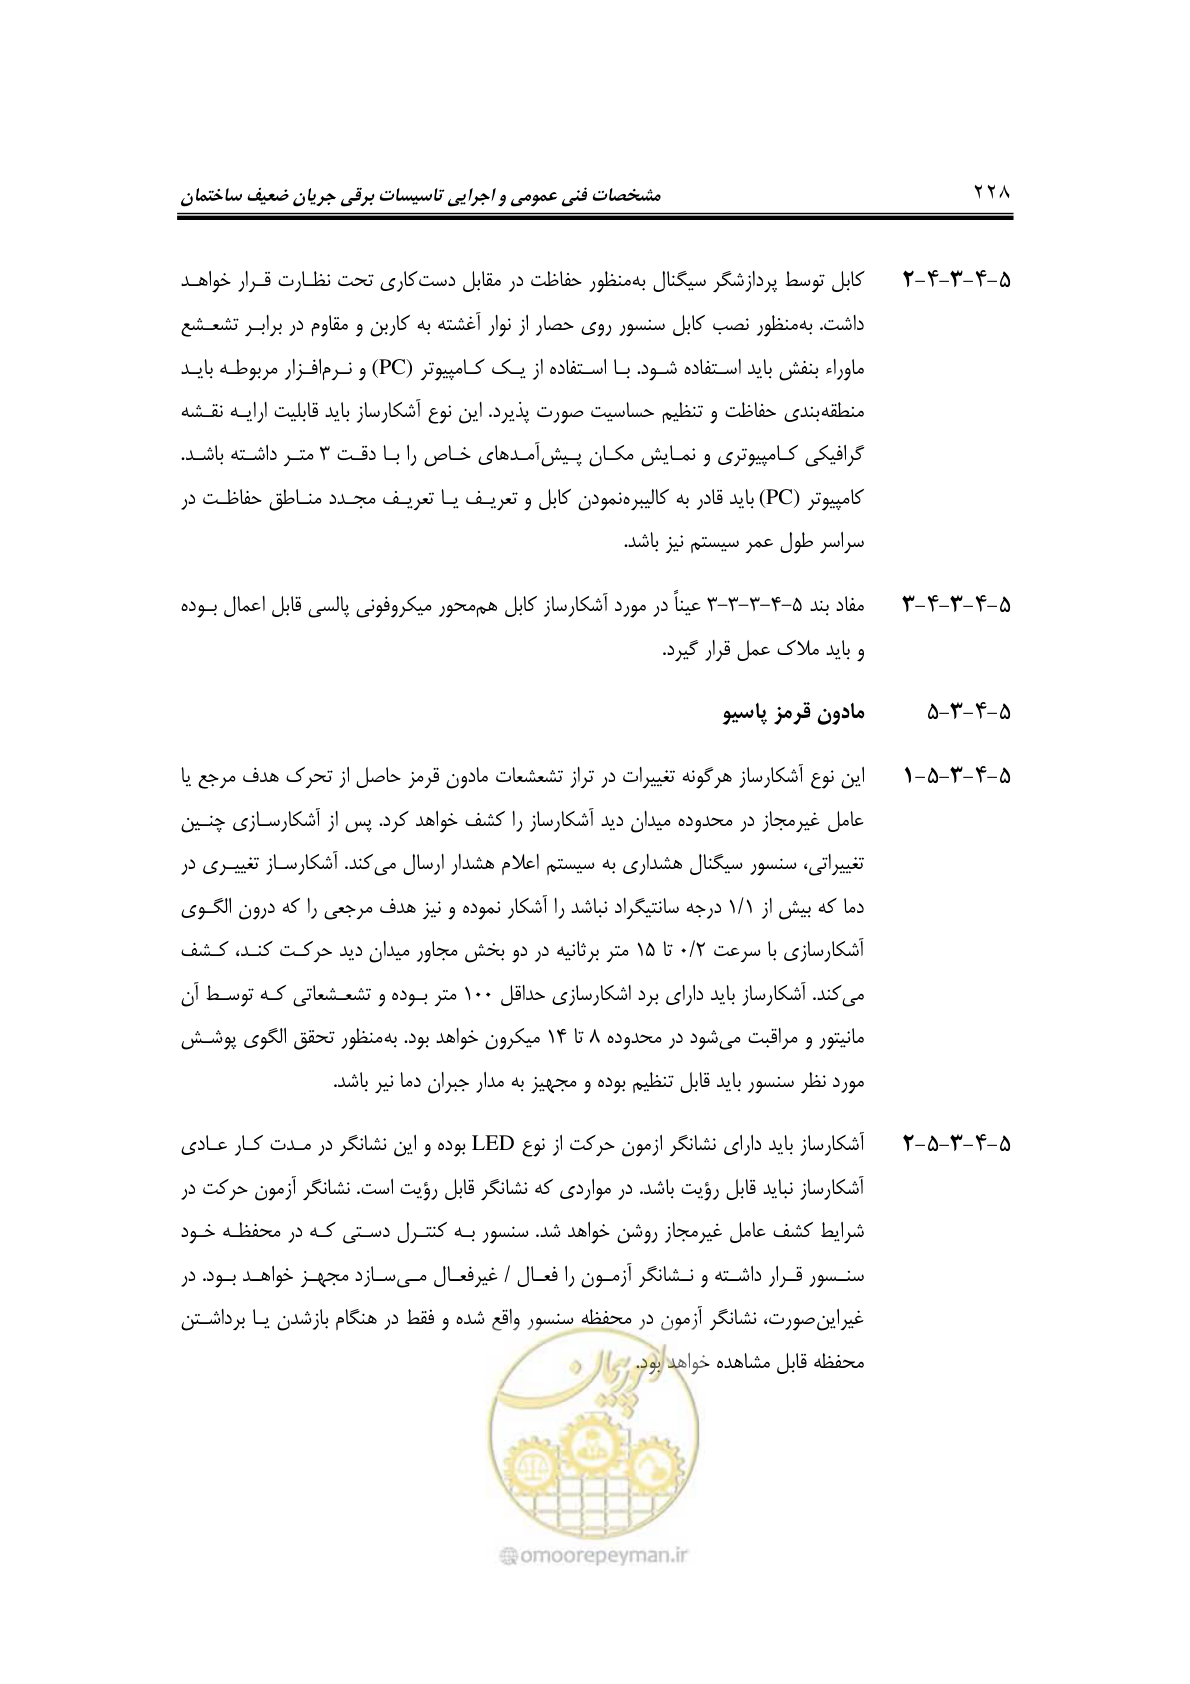 ۲۲۸
مشخصات فنی عمومی و اجرایی تاسیسات برقی جریان ضعیف ساختمان
۵-۴-۳-۴-۲ کابل توسط پردازشگر سیگنال به‌منظور حفاظت در مقابل دست‌کاری تحت نظارت قرار خواهد
داشت. به‌منظور نصب کابل سنسور روی حصار از نوار آغشته به کاربن و مقاوم در برابر تشعشع
ماوراء بنفش باید استفاده شود. با استفاده از یک کامپیوتر (PC) و نرم‌افزار مربوطه باید
منطقه‌بندی حفاظت و تنظیم حساسیت صورت پذیرد. این نوع آشکارساز باید قابلیت ارایه نقشه
گرافیکی کامپیوتری و نمایش مکان پیش‌آمدهای خاص را با دقت ۳ متر داشته باشد.
کامپیوتر (PC) باید قادر به کالیبره‌نمودن کابل و تعریف یا تعریف مجدد مناطق حفاظت در
سراسر طول عمر سیستم نیز باشد.
۵-۴-۳-۴-۳ مفاد بند ۵-۴-۳-۳-۳ عیناً در مورد آشکارساز کابل هم‌محور میکروفونی پالسی قابل اعمال بوده
و باید ملاک عمل قرار گیرد.
۵-۴-۳-۵ مادون قرمز پاسیو
۵-۴-۳-۵-۱ این نوع آشکارساز هرگونه تغییرات در تراز تشعشعات مادون قرمز حاصل از تحرک هدف مرجع یا
عامل غیرمجاز در محدوده میدان دید آشکارساز را کشف خواهد کرد. پس از آشکارسازی چنین
تغییراتی، سنسور سیگنال هشداری به سیستم اعلام هشدار ارسال می‌کند. آشکارساز تغییری در
دما که بیش از ۱/۱ درجه سانتیگراد نباشد را آشکار نموده و نیز هدف مرجعی را که درون الگوی
آشکارسازی با سرعت ۰/۲ تا ۱۵ متر برثانیه در دو بخش مجاور میدان دید حرکت کند، کشف
می‌کند. آشکارساز باید دارای برد اشکارسازی حداقل ۱۰۰ متر بوده و تشعشعاتی که توسط آن
مانیتور و مراقبت می‌شود در محدوده ۸ تا ۱۴ میکرون خواهد بود. به‌منظور تحقق الگوی پوشش
مورد نظر سنسور باید قابل تنظیم بوده و مجهیز به مدار جبران دما نیر باشد.
۵-۴-۳-۵-۲ آشکارساز باید دارای نشانگر ازمون حرکت از نوع LED بوده و این نشانگر در مدت کار عادی
آشکارساز نباید قابل رؤیت باشد. در مواردی که نشانگر قابل رؤیت است. نشانگر آزمون حرکت در
شرایط کشف عامل غیرمجاز روشن خواهد شد. سنسور به کنترل دستی که در محفظه خود
سنسور قرار داشته و نشانگر آزمون را فعال / غیرفعال می‌سازد مجهز خواهد بود. در
غیراین‌صورت، نشانگر آزمون در محفظه سنسور واقع شده و فقط در هنگام بازشدن یا برداشتن
محفظه قابل مشاهده خواهد بود.
امور پیمان
omoorepeyman.ir